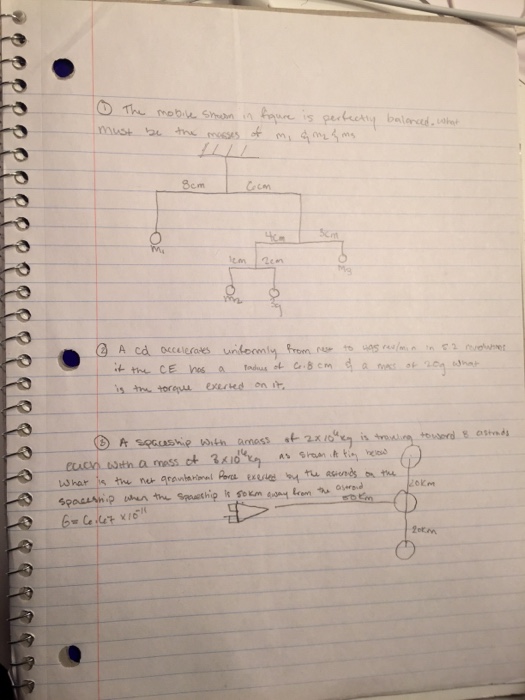 ① The mobile shown in figure is perfectly balanced. what
must be the masses of m₁ & m₂ & m₃
8cm 6cm
4cm 5cm
m₁
1cm 2cm
m₂ 3g
② A cd accelerates uniformly from rest to rev/min in
if the CE has a radius of 6.8 cm & a mass of 20g what
is the torque exerted on it.
③ A spaceship with a mass of 2x10⁴kg is traveling toward 3 astroids
each with a mass of 3x10¹⁴kg as shown fig below
what is the net gravitational force exerted by the astroids on the
spaceship when the spaceship is 50km away from the astroid
20km
G= 6.67 x10⁻¹¹
20km